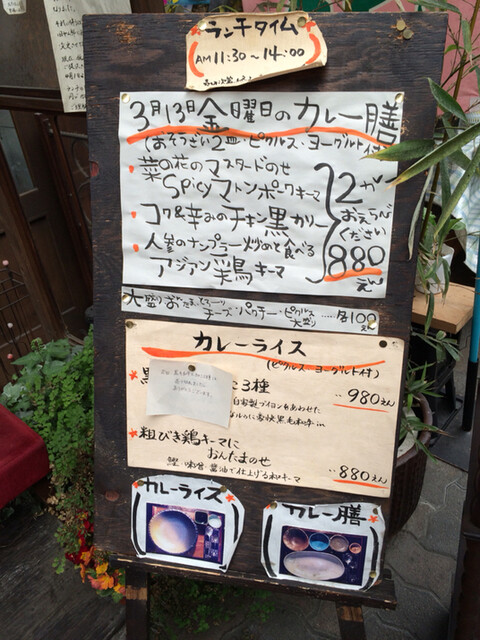 ランチタイム
AM11:30〜14:00
3月13日金曜日のカレー膳
(おそうざい2皿・ピクルス・ヨーグルト付)
・菜の花のマスタードのせ
Spicyマトンポークキーマ
・コク&辛みのチキン黒カリー
・人参のナンプラー炒めと食べる
アジアン鶏キーマ
2つ
おえらび
ください
880えん
大盛り
チーズ・パクチー・ピクルス大盛り ……各100えん
カレーライス
(ピクルス ヨーグルト付)
3種
980えん
自家製ブイヨンをあわせた
粗びき鶏キーマに
おんたまのせ
鰹・味噌・醤油で仕上げる和キーマ
880えん
カレーライス
カレー膳